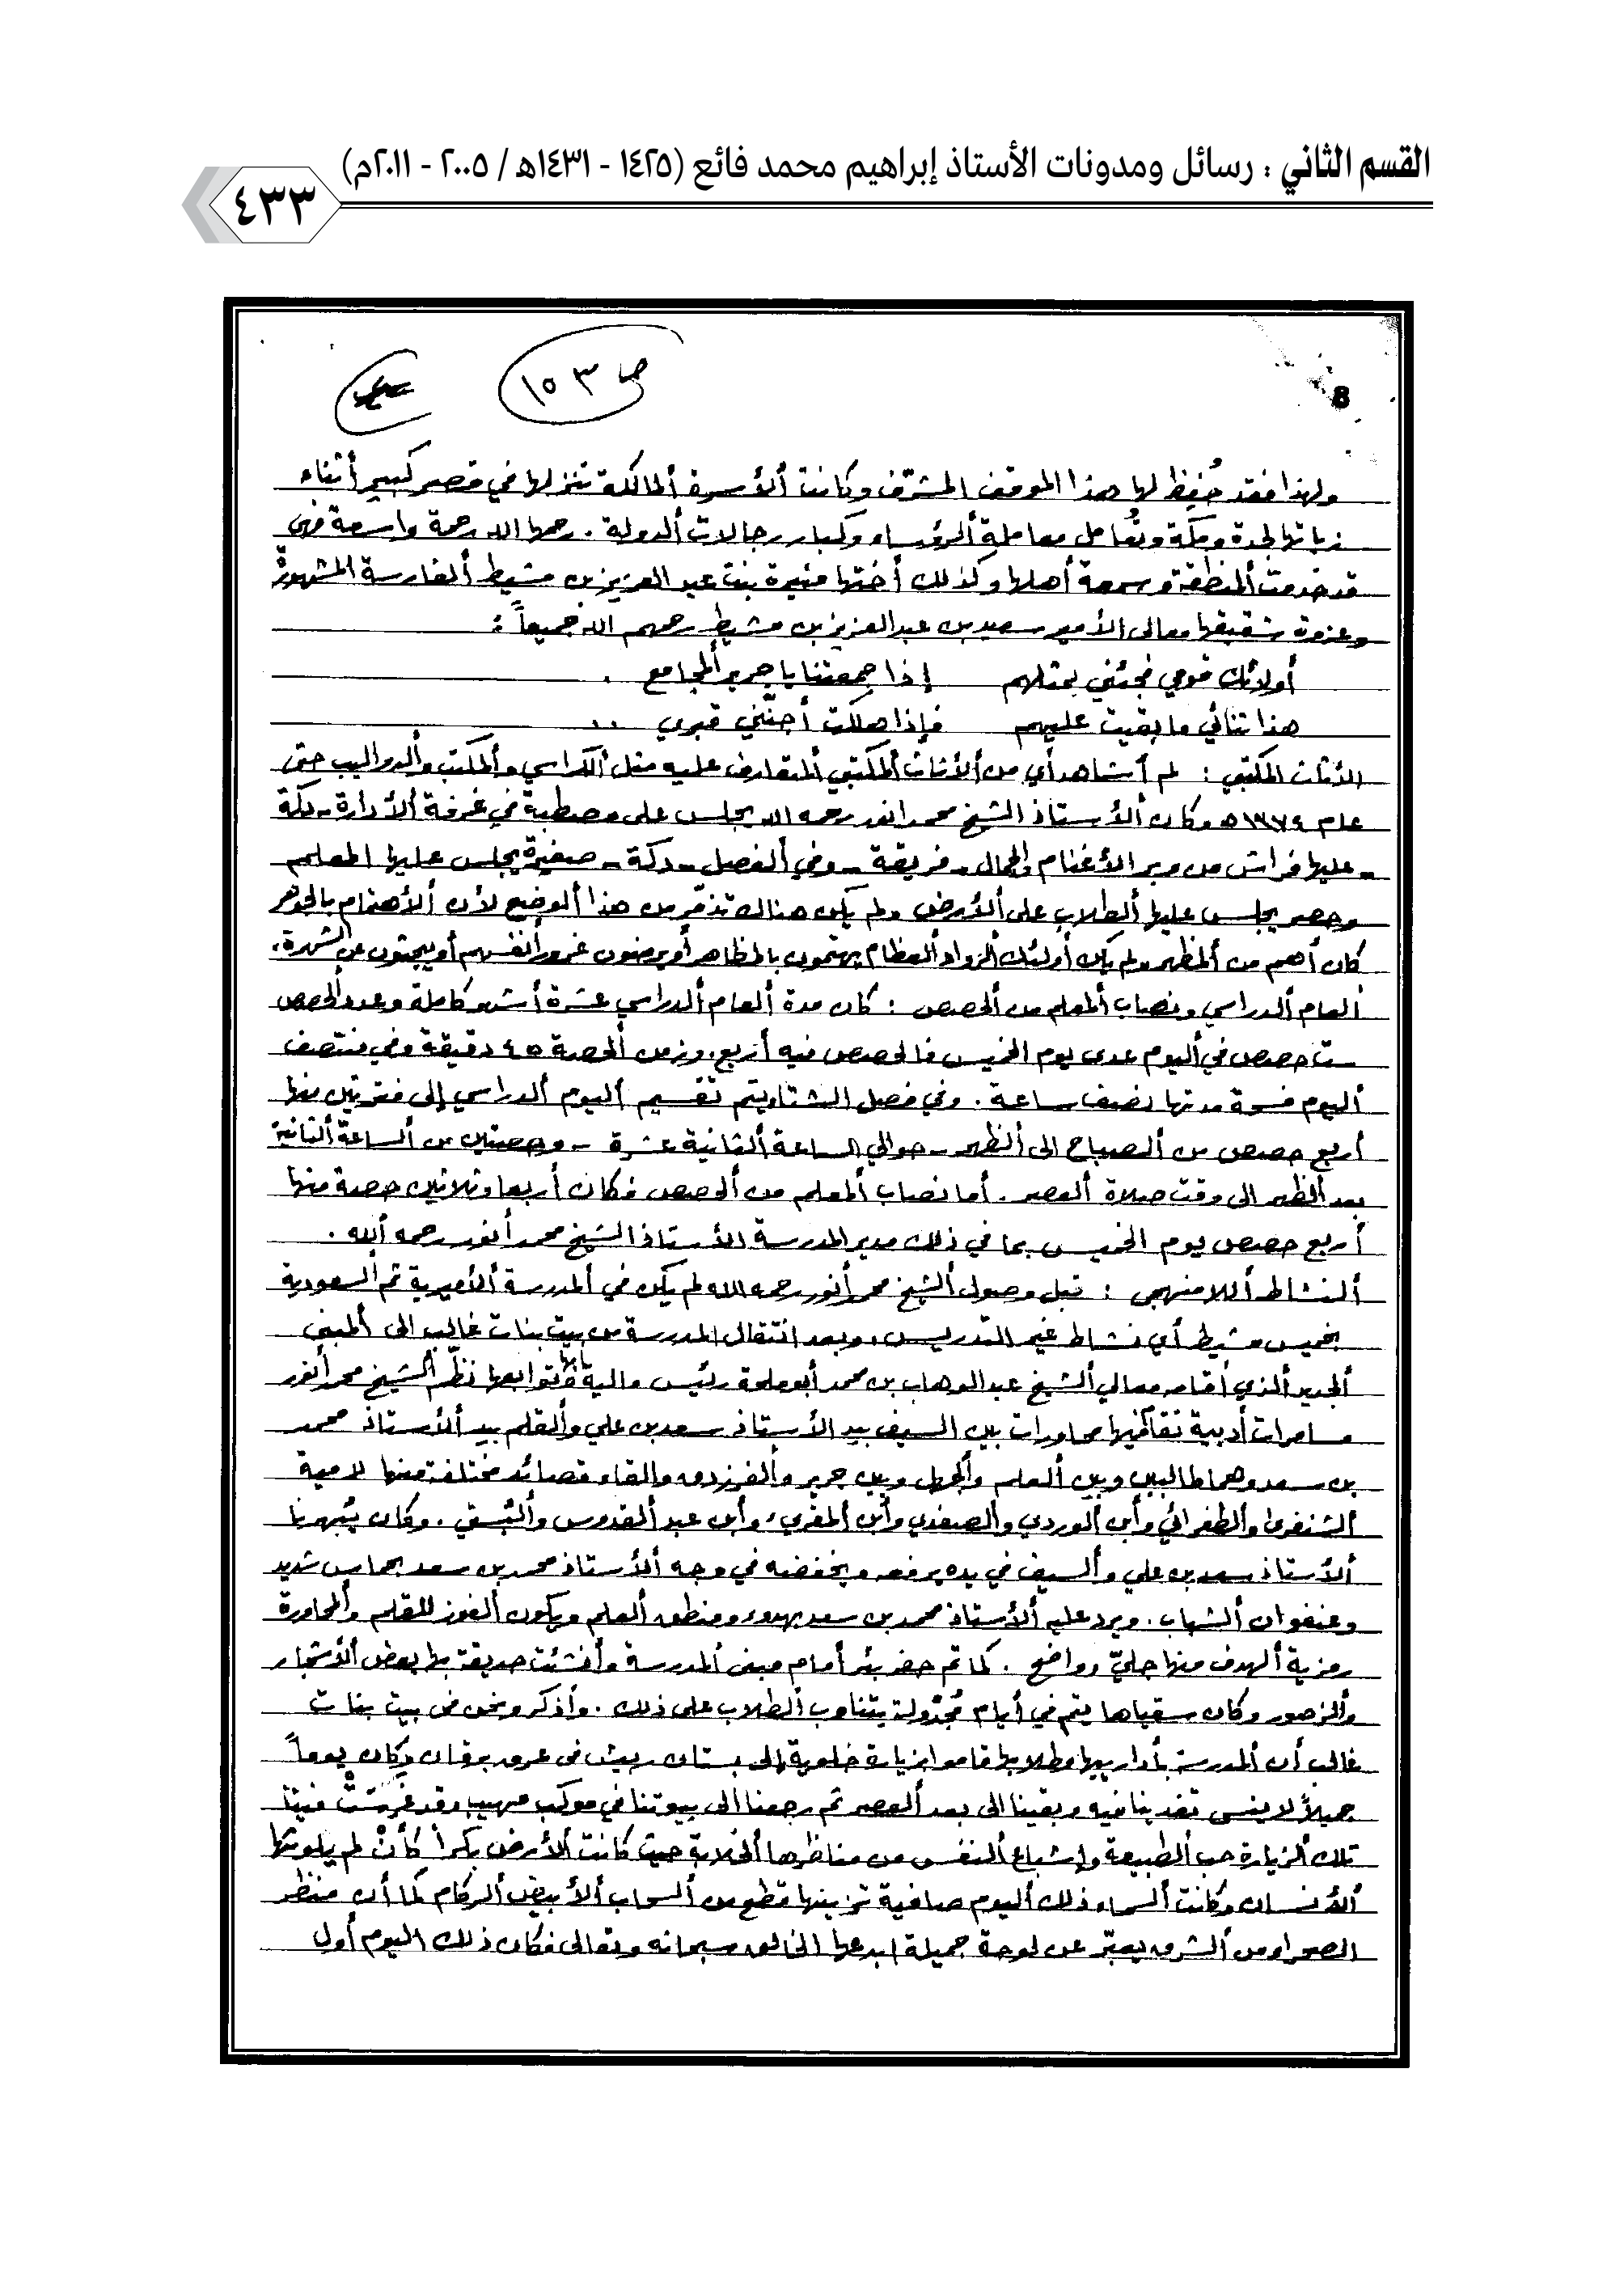 القسم الثاني : رسائل ومدونات الأستاذ إبراهيم محمد فائع (١٤٢٥ - ١٤٣١هـ / ٢٠٠٥ - ٢٠١١م)
٤٣٣
ص ١٥٣
8
ولهذا فقد حُفِظ لها هذا الموقف المشرّف وكانت ألأسرة ألمالكة تنزلها في قصر كبير أثناء
زياتها لجدة ومكة وتُعامل معاملة ألرؤساء وكبار رجالات ألدولة . رحمها الله رحمة واسعة فهي
قد خدمت ألمنطقة وسمعة أهلها وكذلك أختها منيرة بنت عبد العزيز بن مشيط ألفارسة المشهورة
وعزوة شقيقها معالي الأمير سعيد بن عبدالعزيز بن مشيط رحمهم الله جميعاً :
أولائك قومي فجئني بمثلهم إذا جمعتنا يا جرير ألمجامع .
هذا ثنائي ما بقيت عليهم فإذا هلكت أجنّني قبري ..
الأثاث المكتبي : لم أشاهد أي من ألأثاث ألمكتبي ألمتعارف عليه مثل ألكراسي وألمكتب وألدواليب حتى
عام ١٣٧٤ه وكان ألأستاذ الشيخ محمد انور رحمه الله يجلس على مصطبة في غرفة ألأدارة - دكة
- عليها فراش من وبر الأغنام وألجمال - فريقة - وفي ألفصل - دكة - صغيرة يجلس عليها المعلم
وحصر يجلس عليها ألطلاب على ألأرض ولم يكن هناك تذمّر من هذا ألوضع لأن ألأهتمام بالجوهر
كان أهم من ألمظهر ولم يكن أولئك ألرواد ألعظام يهتمون بالمظاهر أو يرضون غرور أنفسهم أو يبحثون عن الشهرة.
ألعام ألدراسي ونصاب ألمعلم من ألحصص : كان مدة ألعام ألدراسي عشرة أشهر كاملة وعدد ألحصص
ست حصص في أليوم عدى يوم الخميس فالحصص فيه أربع. وزمن ألحصة ٤٥ دقيقة وفي منتصف
أليوم فسحة مدتها نصف ساعة . وفي فصل الشتاء يتم تقسيم أليوم ألدراسي إلى فترتين منها
أربع حصص من ألصباح الى ألظهر - حوالي الساعة ألثانية عشرة - وحصتين من ألساعة ألثانية
بعد ألظهر الى وقت صلاة ألعصر . أما نصاب ألمعلم من ألحصص فكان أربعا وثلاثين حصة منها
أربع حصص يوم الخميس بما في ذلك مدير المدرسة الأستاذ الشيخ محمد أنور رحمه ألله .
ألنشاط أللامنهجي : قبل وصول ألشيخ محمد أنور رحمه الله لم يكن في ألمدرسة ألأميرية ثم ألسعودية
بخميس مشيط أي نشاط غير التدريس. وبعد انتقال المدرسة من بيت بنات غالب الى ألمبنى
ألجديد ألذي أقامه معالي ألشيخ عبد الوهاب بن محمد أبوملحة رئيس مالية أبها وتوابعها نظّم ألشيخ محمد أنور
مسامرات أدبية تقام فيها محاورات بين السيف بيد الأستاذ سعد بن علي وألقلم بيد ألأستاذ محمد
بن سعد وهما طالبين وبين ألعلم وألجهل وبين جرير وألفرزدق والقاء قصائد مختلفة منها لامية
ألشنفرى وألطغرائي وأبن ألوردي وألصفدي وأبن ألمقري، وأبن عبد ألقدوس وألبستي . وكان يُبهرنا
ألأستاذ سعد بن علي وألسيف في يده يرفعه ويخفضه في وجه ألأستاذ محمد بن سعد بحماس شديد
وعنفوان ألشباب . ويرد عليه ألأستاذ محمد بن سعد بهدوء ومنطق ألعلم ويكون ألفوز للقلم وألمحاورة
رمزية ألهدف منها جليّ وواضح . كما تم حفر بئر أمام مبنى ألمدرسة وأنشئت حديقة بها بعض ألأشجار
وألزهور وكان سقياها يتم في أيام مُجدْولة يتناوب ألطلاب على ذلك . وأذكر ونحن في بيت بنات
غالب أن ألمدرسة بأدارييها وطلابها قاموا بزيارة خلوية إلى بستان ريش في عرق برقان وكان يوماً
جميلاً لا ينسى تغدينا فيه وبقينا الى بعد ألعصر ثم رجعنا الى بيوتنا في موكب مهيب وقد غرستْ فينا
تلك ألزيارة حب ألطبيعة وإشباع ألنفس من مناظرها ألخلابة حيث كانت ألأرض بكراً كأنْ لم يلوثها
ألأنسان وكانت ألسماء ذلك أليوم صافية تزينها قطع من ألسحاب ألأبيض ألركام كما أن منظر
الصحراء من ألشرق يعبّر عن لوحة جميلة ابدعها الخالق سبحانه وتعالى فكان ذلك اليوم أول